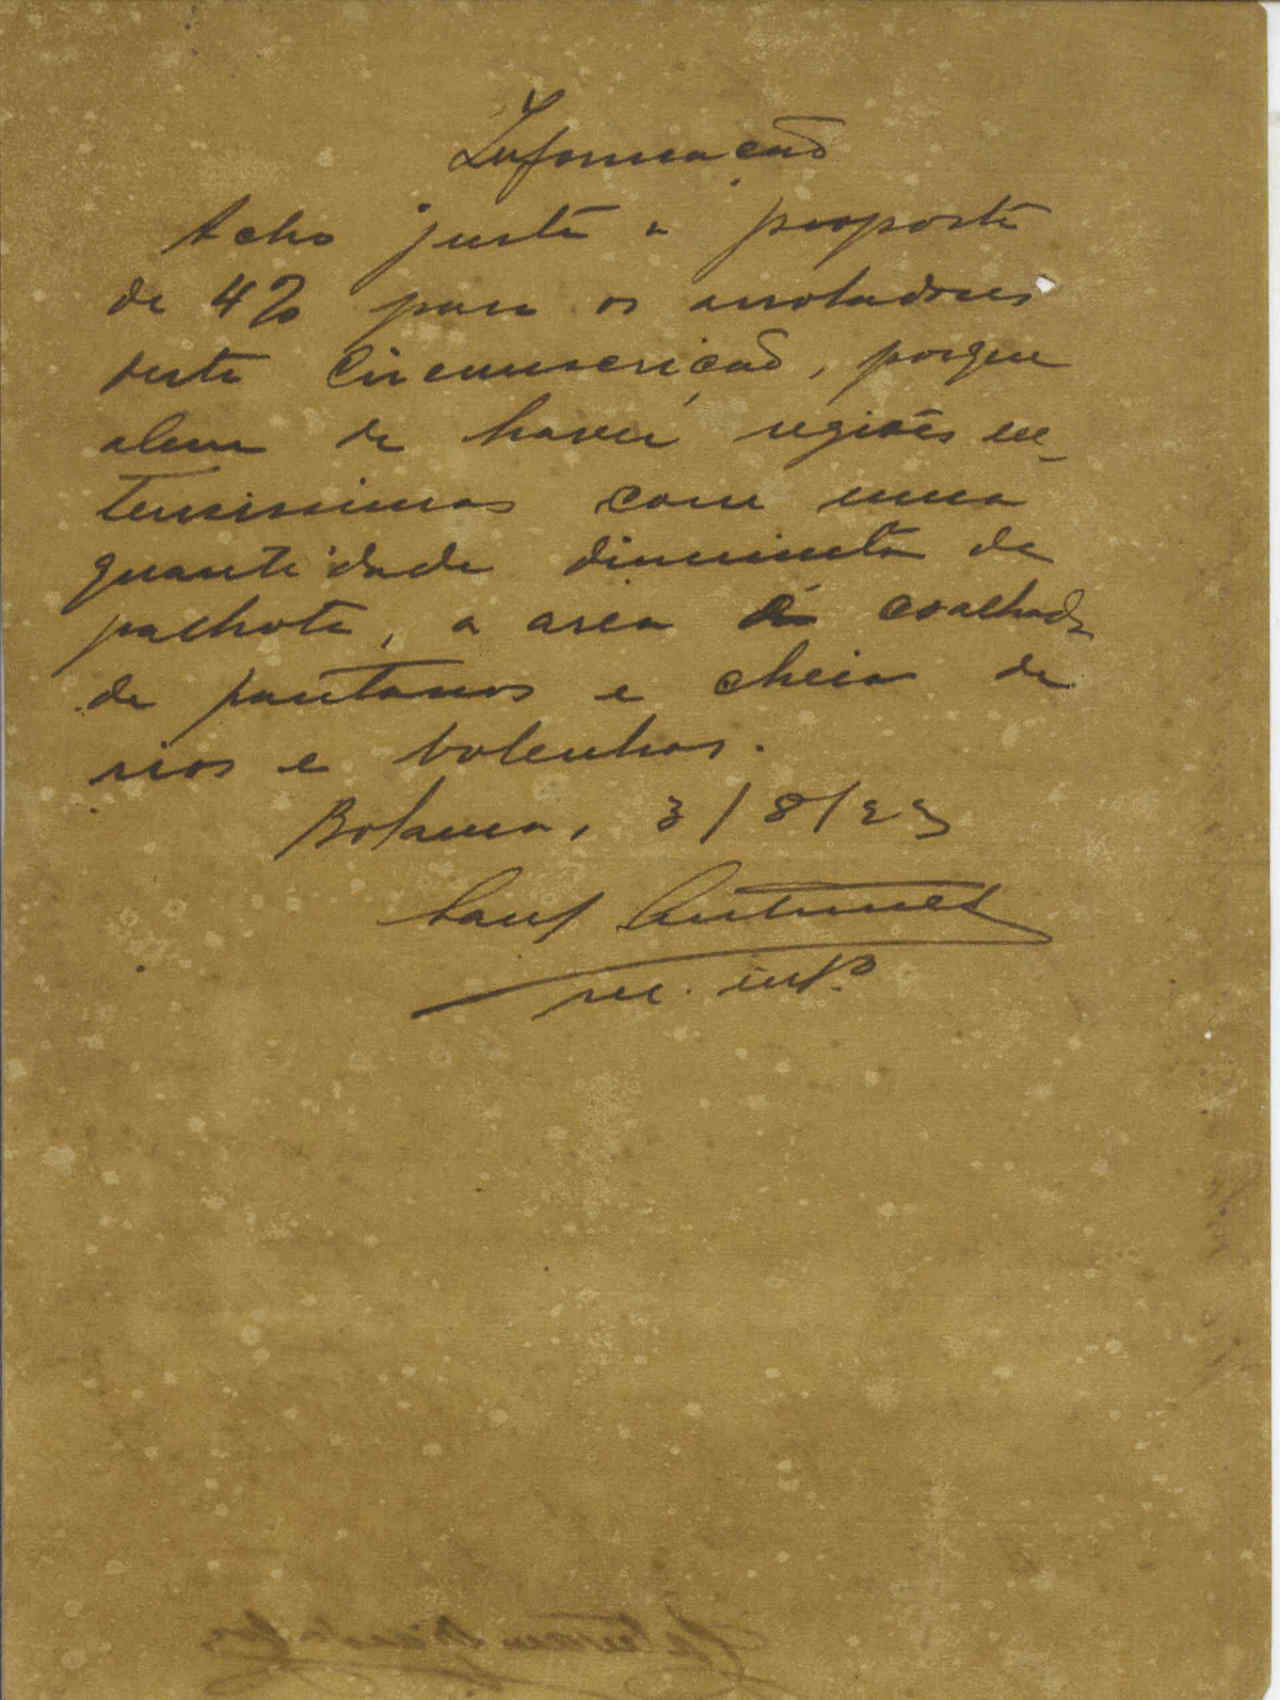 Informação
Acho justa a proposta
de 4% para os arroladores
desta Circunscrição, porque
alem de haver regiões ex-
tensissimas com uma
quantidade diminuta de
palhota, a area é coalhada
de pantanos e cheia de
rios e bolenhas.
Bolama, 3/8/23
Antunes
sec. intº